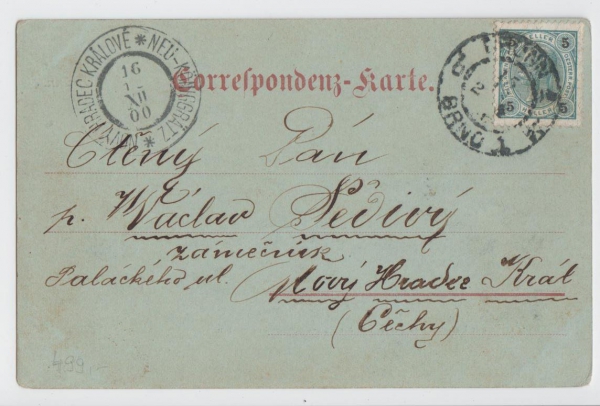 Correspondenz-Karte.
NOVÝ HRADEC KRÁLOVÉ * NEU-KÖNIGGRÄTZ *
16
XII
00
5
5 5
BRÜNN
BRNO 1
Ctěný Pán
p. Václav Šedivý
zámečník
Palackého ul. Nový Hradec Král
(Čechy)
499.-